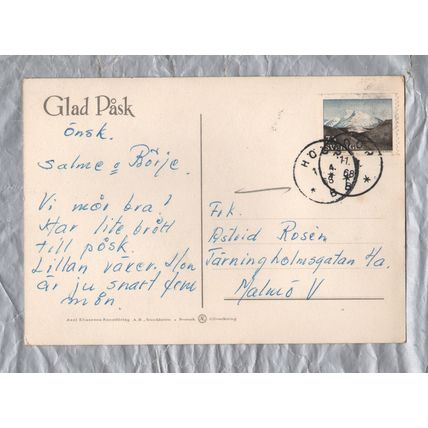 Glad Påsk
önsk.
Salme o Börje.
Vi mår bra!
Har lite brått
till påsk.
Lillan växer. Hon
är ju snart fem
mån.
SVERIGE
Frk.
Astrid Rosén
Tärningholmsgatan
Malmö V
Axel Eliassons Konstförlag A.B., Stockholm